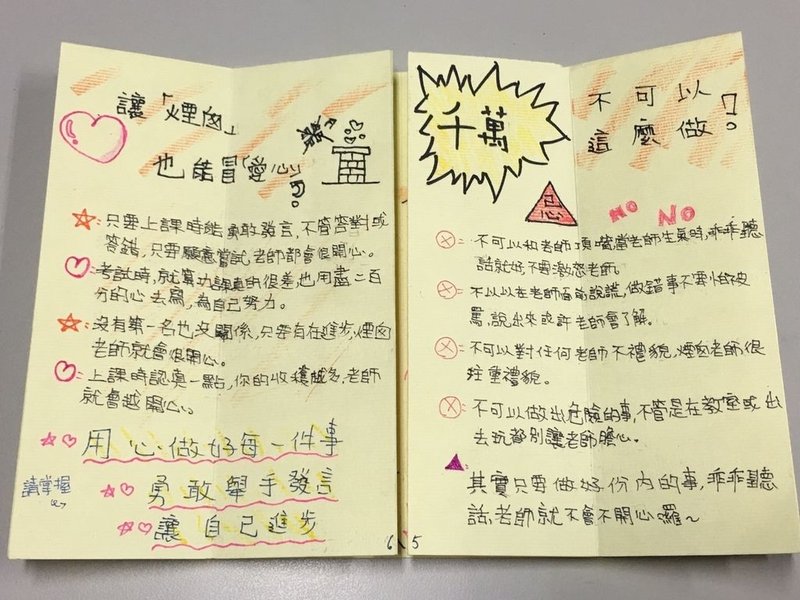 讓「煙囪」
也能冒「愛心」!
只要上課時能勇敢發言,不管答對或
答錯,只要願意嘗試,老師都會很開心。
考試時,就算功課真的很差也用盡二百
分的心去寫,為自己努力。
沒有第一名也沒關係,只要有在進步,煙囪
老師就會很開心。
上課時認真一點,你的收穫越多,老師
就會越開心。
用心做好每一件事
請掌握
勇敢舉手發言
讓自己進步
6
千萬
不可以
這麼做!
忌
NO NO
不可以和老師頂嘴,當老師生氣時,乖乖聽
話就好,不要激怒老師。
不以以在老師面前說謊,做錯事不要怕被
罵,說出來或許老師會了解。
不可以對任何老師不禮貌,煙囪老師很
注重禮貌。
不可以做出危險的事,不管是在教室或出
去玩都別讓老師擔心。
其實只要做好份內的事,乖乖聽
話,老師就不會不開心囉~
5